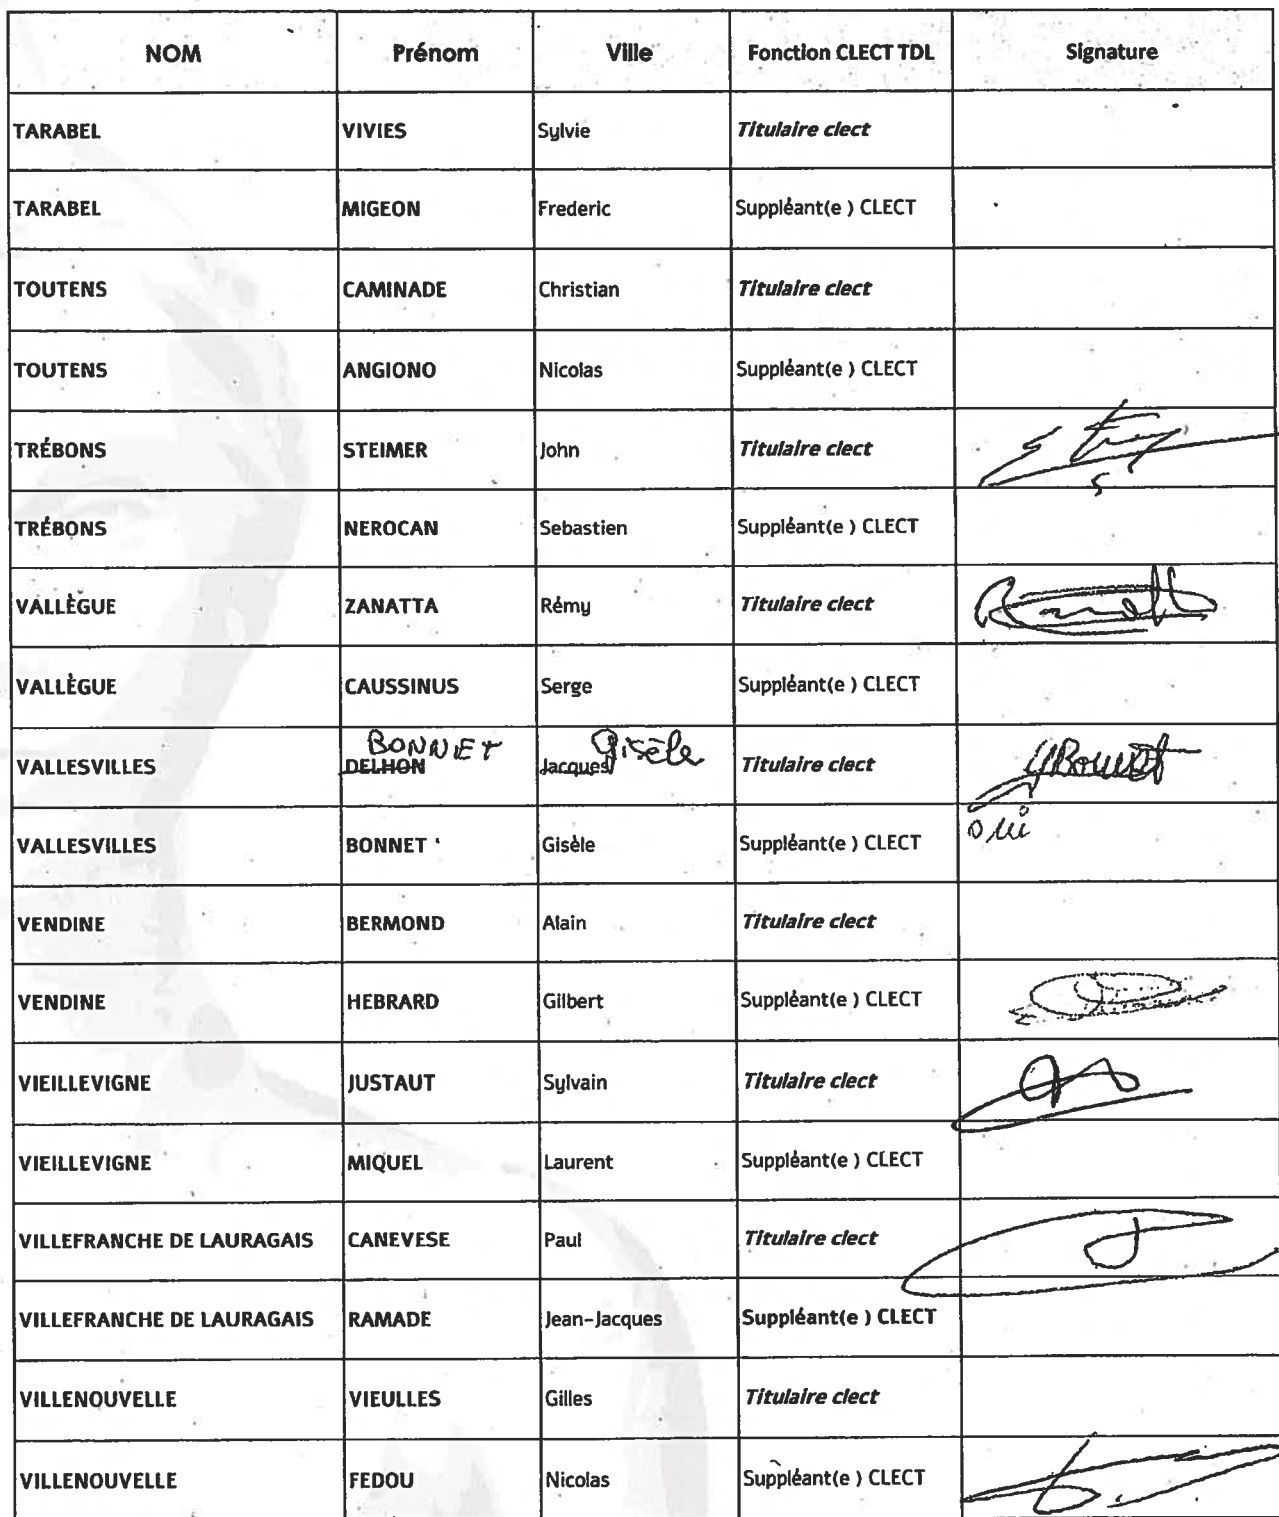 NOM Prénom Ville Fonction CLECT TDL Signature
TARABEL VIVIES Sylvie Titulaire clect
TARABEL MIGEON Frederic Suppléant(e ) CLECT
TOUTENS CAMINADE Christian Titulaire clect
TOUTENS ANGIONO Nicolas Suppléant(e ) CLECT
TRÉBONS STEIMER John Titulaire clect
TRÉBONS NEROCAN Sebastien Suppléant(e ) CLECT
VALLÈGUE ZANATTA Rémy Titulaire clect
VALLÈGUE CAUSSINUS Serge Suppléant(e ) CLECT
BONNET Gisèle
VALLESVILLES DELHON Jacques Titulaire clect GBonnet
VALLESVILLES BONNET Gisèle Suppléant(e ) CLECT oui
VENDINE BERMOND Alain Titulaire clect
VENDINE HEBRARD Gilbert Suppléant(e ) CLECT
VIEILLEVIGNE JUSTAUT Sylvain Titulaire clect
VIEILLEVIGNE MIQUEL Laurent Suppléant(e ) CLECT
VILLEFRANCHE DE LAURAGAIS CANEVESE Paul Titulaire clect
VILLEFRANCHE DE LAURAGAIS RAMADE Jean-Jacques Suppléant(e ) CLECT
VILLENOUVELLE VIEULLES Gilles Titulaire clect
VILLENOUVELLE FEDOU Nicolas Suppléant(e ) CLECT